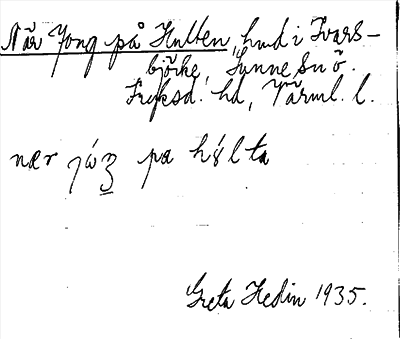 När Jong på Hulten, hmd i Ivars-
björke, Sunne sn ö.
Fryksd. hd, Värml. l.
nær pa hýlta
Greta Hedin 1935.